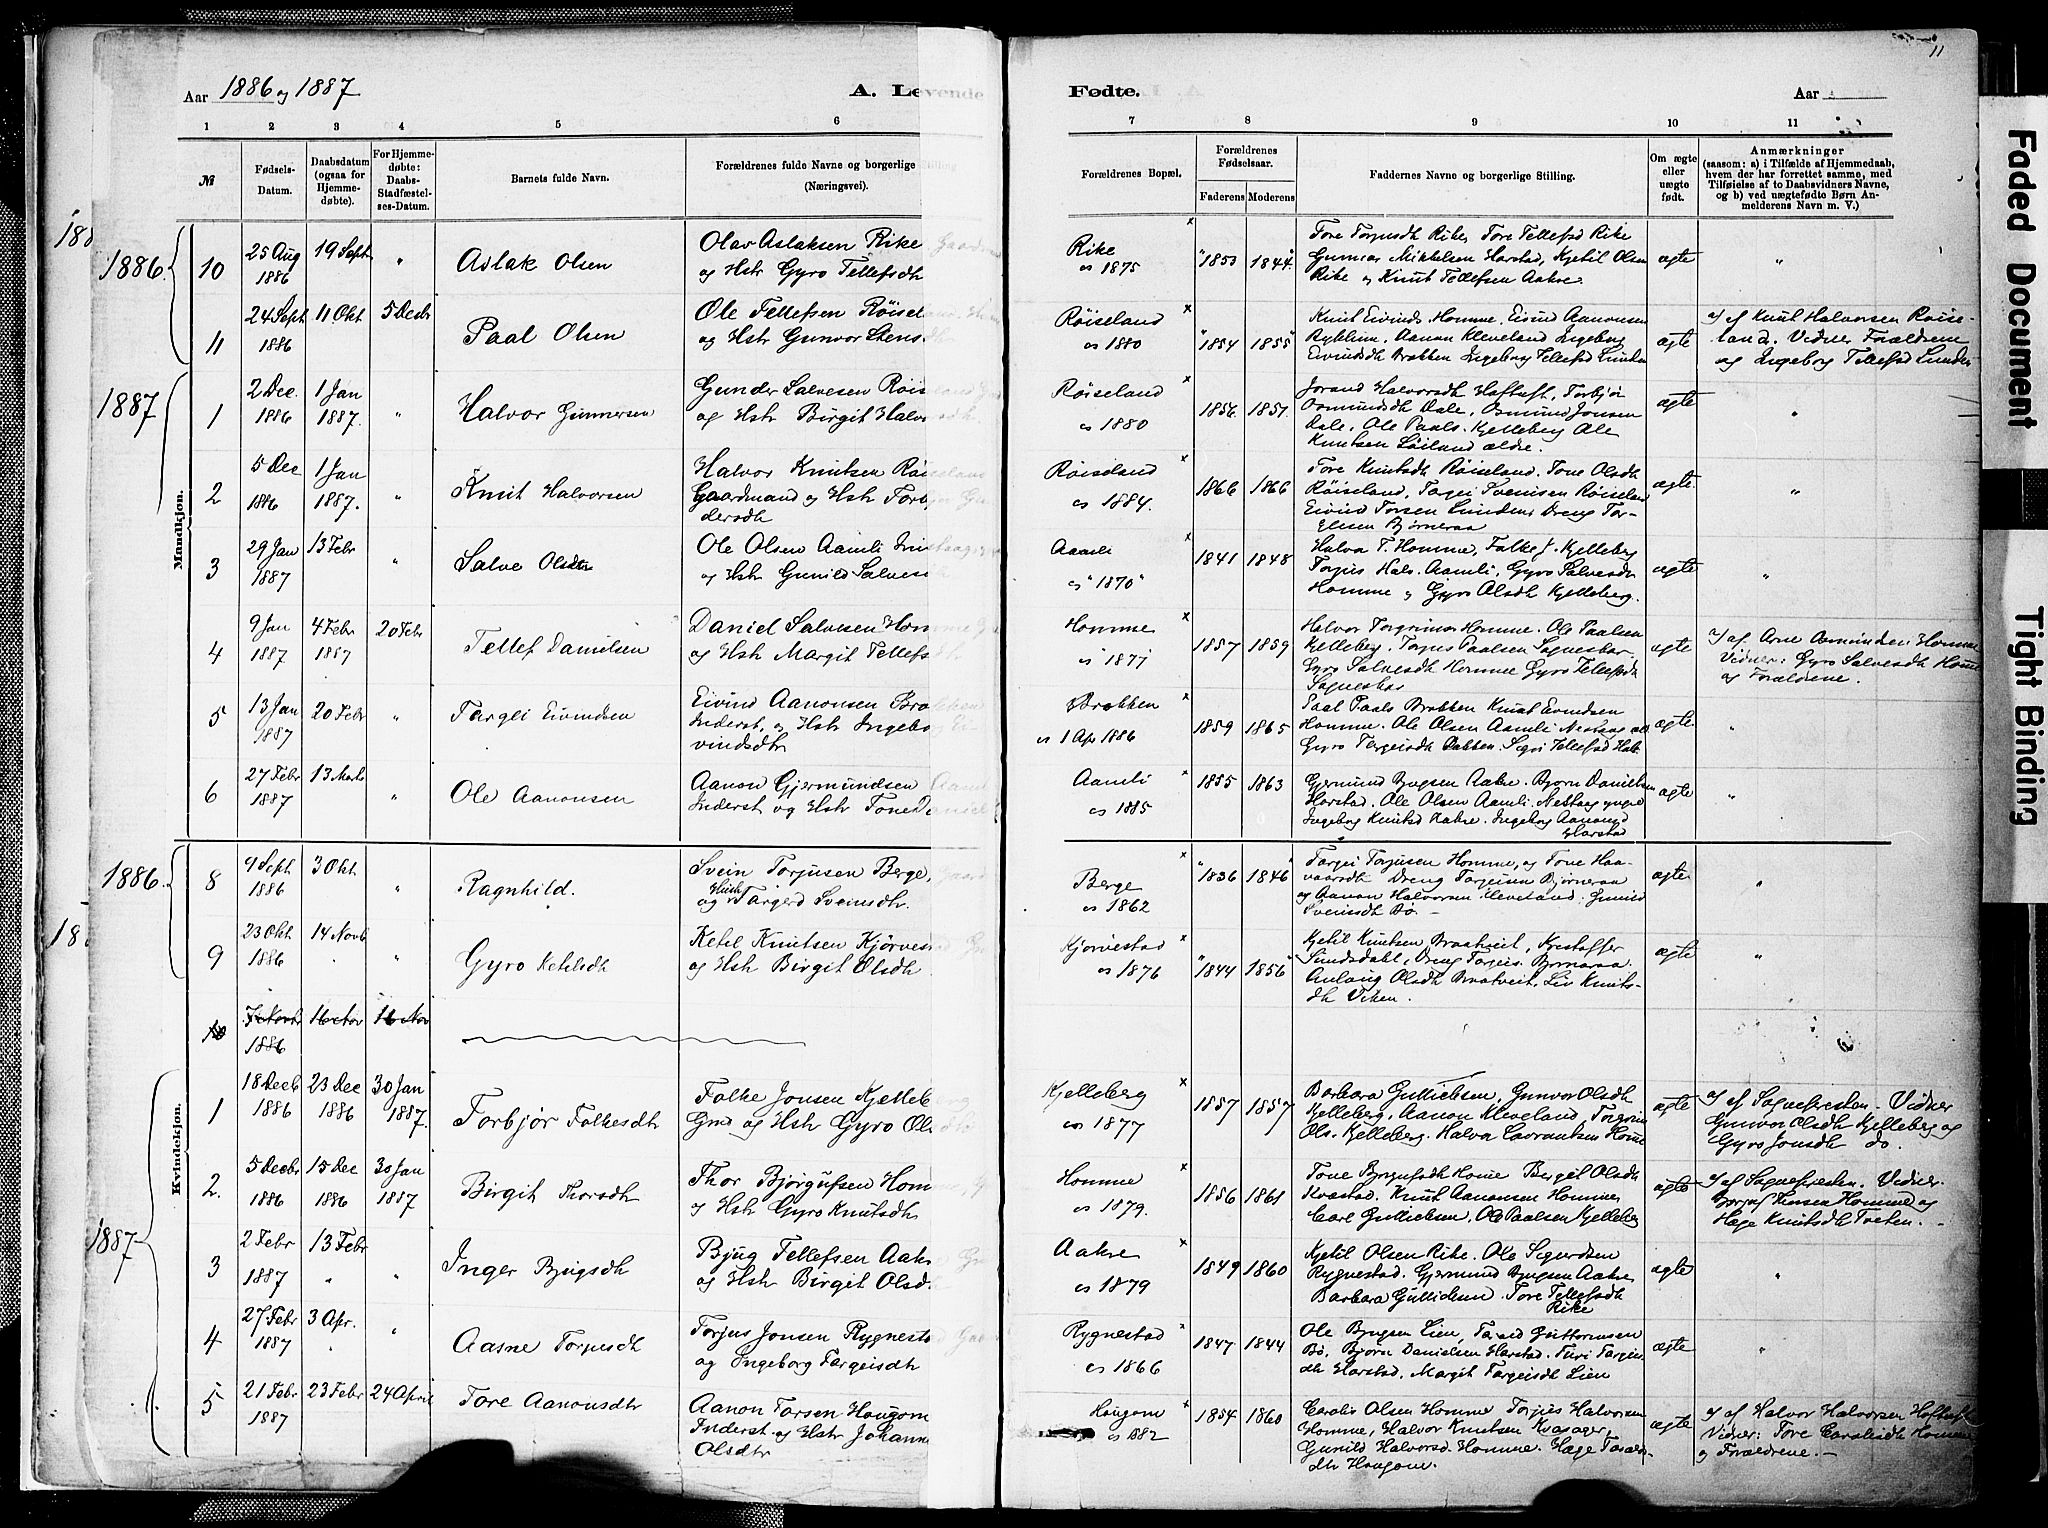 11
Aar 1886 og 1887
A. Levende
Fødte.
Aar
1 2 3 4 5 6
7 8 9 10 11
№
Fødsels-
Datum.
Daabsdatum
(ogsaa for
Hjemme-
døbte).
For Hjemme-
døbte:
Daabs-
Stadfæstel-
ses-Datum.
Barnets fulde Navn.
Forældrenes fulde Navne og borgerlige Stilling
(Næringsvei).
Forældrenes Bopæl.
Forældrenes
Fødselsaar.
Faderens
Moderens
Faddernes Navne og borgerlige Stilling.
Om ægte
eller
uægte
født.
Anmærkninger
(saasom: a) i Tilfælde af Hjemmedaab,
hvem der har forrettet samme, med
Tilføielse af to Daabsvidners Navne,
og b) ved uægtefødte Børn An-
melderens Navn m. V.)
Mandkjøn.
1886
10
25 Aug
1886
19 Sept
"
Aslak Olsen
Olav Aslaksen Rike
og Hstr Gyro Tellefsdtr
Rike
cs 1875
1853 1844
Tore Torjusdtr Rike, Tore Tellefsd Rike
Gunnar Mikkelsen Harstad, Kjetil Olsen
Rike og Knut Tellefsen Aakre.
ægte
"
11
24 Sept
1886
11 Okt
5 Decbr
Paal Olsen
Ole Tellefsen Røiseland
og Hstr Gunvor
Røiseland
cs 1880
1854 1855
Knut Eivinds. Homme, Eivind Aanonsen
Aanon Kleveland Ingeborg
Eivindsdtr Brokken Ingeborg Tellefsd Lunden
ægte
af Knut Halvorsen Røise-
land. Vidner Forældrene
og Ingeborg Tellefsd Lunden
1887
1
2 Dec.
1886
1 Jan
1887.
"
Halvor Gunnersen
Gunder Salvesen Røiseland
og Hstr Birgit Halvorsdtr
Røiseland
cs 1880
1856 1851.
Jorand Halvorsdtr Haftuft, Torbjør
Osmundsdtr Dale, Osmund Jonsen
Dale, Ole Paals. Kjelleberg Ole
Knutsen Løiland ældre.
ægte
"
2
5 Dec
1886
1 Jan
1887.
"
Knut Halvorsen
Halvor Knutsen Røiseland
Gaardmand og Hstr Torbjør Gun-
dersdtr
Røiseland
cs 1884.
1866 1866
Tore Knutsdtr Røiseland. Tone Olsdtr
Røiseland, Targei Sveinsen Røiseland
Eivind Torsen Lunden, Dreng Tar-
geisen Bjørneraa
ægte.
"
3
29 Jan
1887
13 Febr
"
Salve Olsen
Ole Olsen Aamli
og Hstr Gunild Salvesdtr
Aamli
cs "1870"
1841 1848
Halvor T. Homme, Falke J. Kjelleberg
Torjus Halv. Aamli, Gyro Salvesdtr
Homme og Gyro Olsdtr Kjelleberg.
ægte
"
4
9 Jan
1887
4 Febr
1887
20 Febr
Tellef Danielsen
Daniel Salvesen Homme
og Hstr Margit Tellefsdtr
Homme
cs 1877
1857 1859
Halvor Torgrimsen Homme. Ole Paalsen
Kjelleberg. Torjus Paalsen Sagneskar
Gyro Salvesdtr Homme Gyro Tellefsdtr
Sagneskar
ægte
af Arne Osmundsen Homme
Vidner: Gyro Salvesdtr Homme
og Forældrene.
5
13 Jan
1887
20 Febr
"
Targei Eivindsen
Eivind Aanonsen Brokken
Inderst. og Hstr Ingeborg Ei-
vindsdtr
Brokken
cs 1 Apr 1886
1859 1865
Paal Paals Brokken Knut Eivindsen
Homme. Ole Olsen Aamli
Gyro Targeisdtr Bakken.
ægte
"
6
27 Febr
1887
13 Marts
"
Ole Aanonsen
Aanon Gjermundsen
Inderst og Hstr Tone Danielsd
Aamli
cs 1885
1855 1863
Gjermund Bjugsen Aakre. Bjørn Danielsen
Harstad. Ole Olsen Aamli Nestaag yngre
Ingeborg Knutsd Aakre. Ingeborg Aanonsd
Harstad
ægte
"
Kvindekjøn.
1886
8
9 Sept
1886
3 Okt
"
Ragnhild.
Svein Torjusen Berge,
og Hustr Targerd Sveinsdtr.
Berge
cs 1862
1836 1846
Targei Torjusen Homme, og Tone Haa-
vaarsdtr Dreng Targeisen Bjørneraa
og Aanon Halvorsen Kleveland. Gunild
Sveinsdtr Bø
ægte
"
9
23 Okt
1886
14 Novb
"
Gyro Ketilsdtr
Ketil Knutsen Kjørvestad
og Hstr Birgit Olsdtr
Kjørvestad
cs 1876
1844 1856
Kjetil Knutsen Brottveit, Kristoffer
Sundsdahl, Dreng Targeis. Bjørneraa
Anlaug Olsdtr Brottveit, Liv Knuts-
dtr Viken.
ægte
"
10
7 Novbr
1886
16 Nov
16 Nov
1887
1
18 Decb
1886
23 Dec
1886
30 Jan
1887.
Torbjør Falkesdtr
Falke Jonsen Kjelleberg
Gmd og Hstr Gyro Olsdtr
Kjelleberg
cs 1877
1857 1857
Barbara Gullicksen, Gunvor Olsdtr
Kjelleberg, Aanon Kleveland, Torgrim
Ols. Kjelleberg. Halvor Lavrantsen Homme
ægte
af Sognepresten. Vidner
Gunvor Olsdtr Kjelleberg og
Gyro Jonsdtr do.
2.
5 Decbr
1886
15 Dec
1886
30 Jan
1887
Birgit Thorsdtr
Thor Bjørgufsen Homme
og Hstr Gyro Knutsdtr
Homme
cs 1879.
1856 1861
Tone Bjørgufsdtr Home Bergit Olsdtr
Kvastad. Knut Aanonsen Homme
Carl Gullicksen, Ole Paalsen Kjelleberg
ægte
af Sognepresten. Vidner
Homme og
Hæge Knutsdtr Tveten.
3
2 Febr
1887
13 Febr
"
"
Inger Bjugsdtr
Bjug Tellefsen Aakre
og Hstr Birgit Olsd.
Aakre
cs 1879
1849 1860
Kjetil Olsen Rike. Ole Sigurdsen
Rygnestad. Gjermund Bjugsen Aakre
Barbara Gullicksen. Tore Tellefsdtr
Rike
ægte
"
4
27 Febr
1887
3 Apr.
"
Aasne Torjusdtr
Torjus Jonsen Rygnestad
og Ingeborg Targeisdtr
Rygnestad
cs 1866
1847 1844
Ole Bjugsen Lien, Guttormsen
Bø. Bjørn Danielsen Harstad. Turi Targeis
dtr Harstad. Margit Targeisdtr Lien
ægte
"
5
21 Febr
1887
23 Febr
24 April
Tore Aanonsdtr
Aanon Torsen Haugom
Inderst. og Hstr Johanne
Olsdtr
Haugom
cs 1882
1854 1860
Carolis Olsen Homme Torjus Halvorsen
Homme, Halvor Knutsen Kvasager,
Gunild Halvorsd. Homme. Hæge
dtr Haugom.
ægte
af Halvor Halvorsen Haftuft
Vidner: Tore Carolisdtr Homme
og Forældrene.
Faded Document
Tight Binding